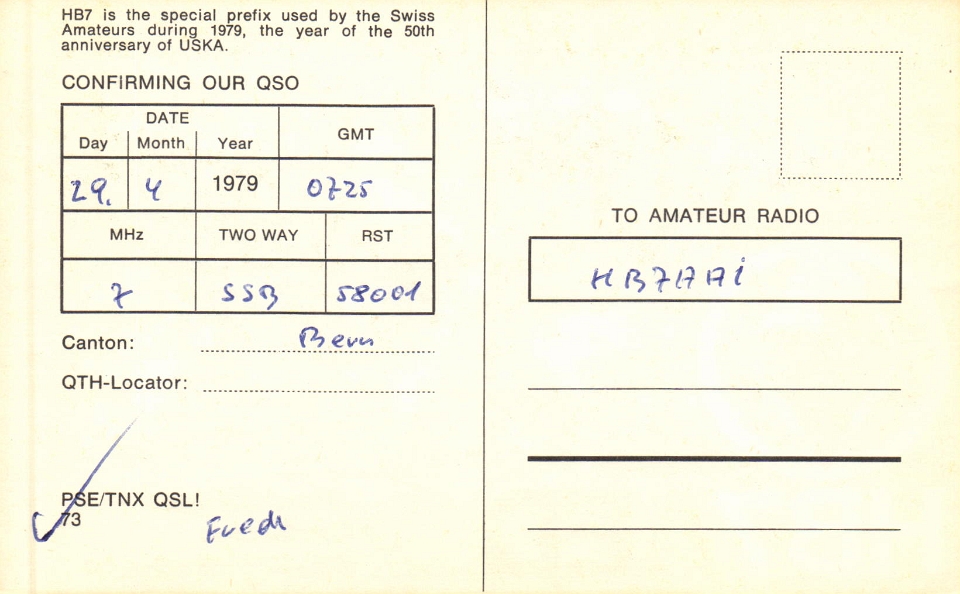 HB7 is the special prefix used by the Swiss
Amateurs during 1979, the year of the 50th
anniversary of USKA.
CONFIRMING OUR QSO
DATE
GMT
Day Month Year
29. 4 1979 0725
MHz TWO WAY RST
7 SSB 58001
Canton: Bern
QTH-Locator:
PSE/TNX QSL!
73
Fredi
TO AMATEUR RADIO
HB7AAI